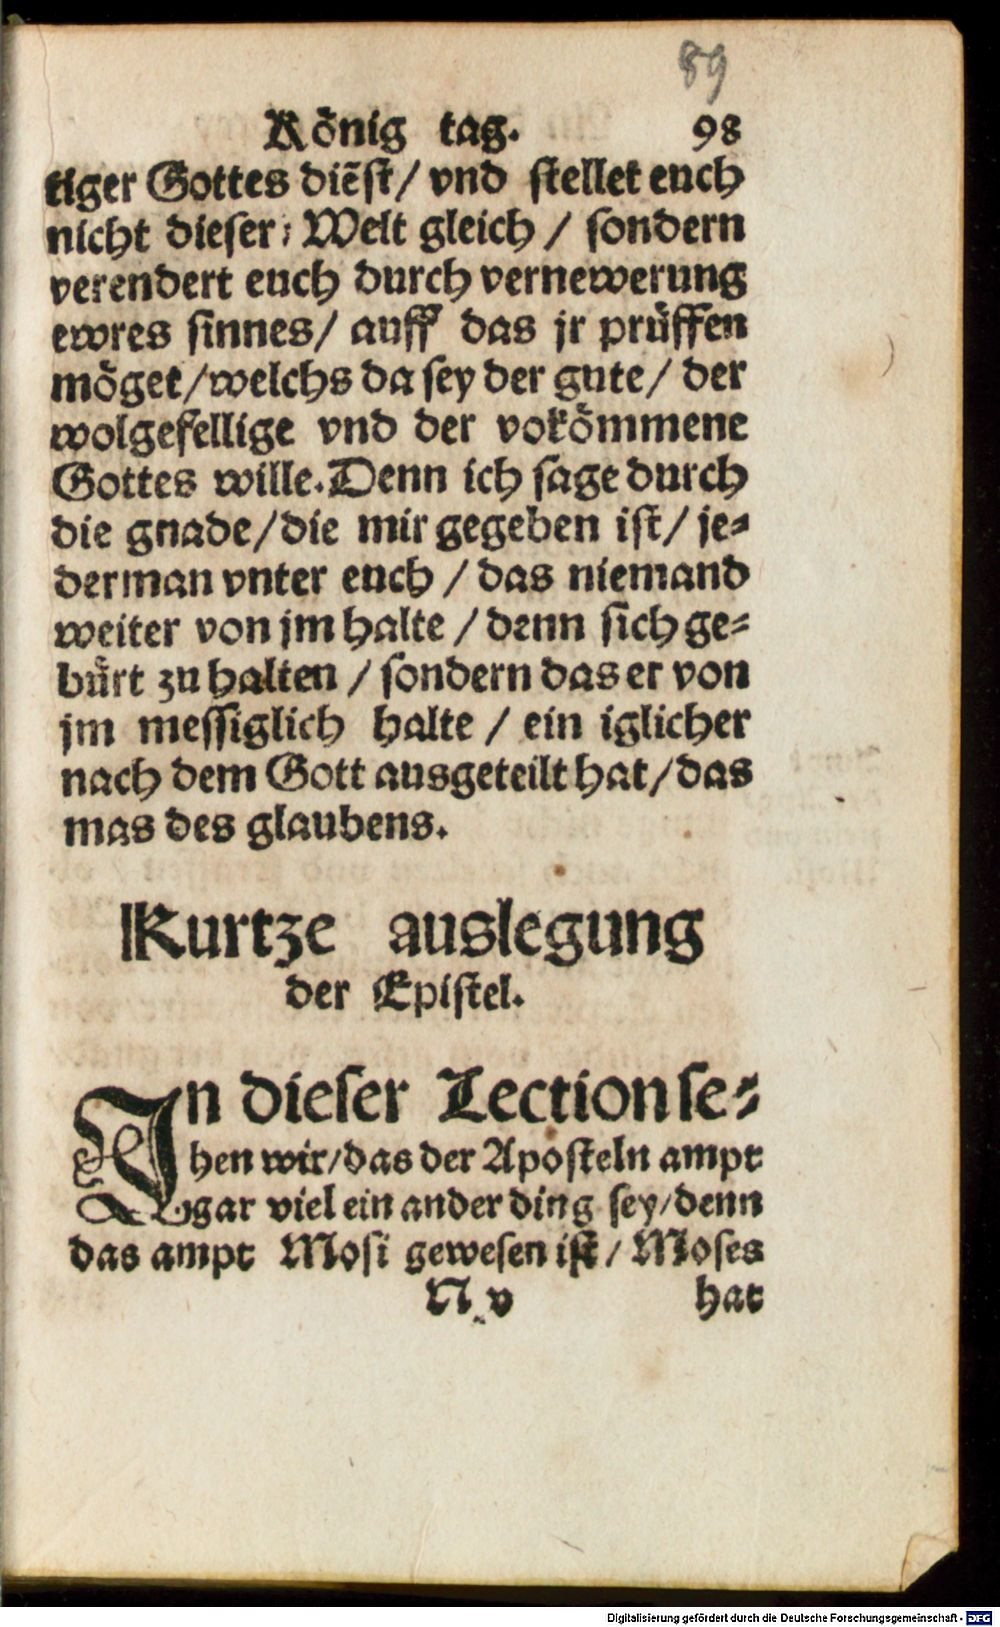 89
König tag. 98
tiger Gottes diẽst/ vnd stellet euch
nicht dieser: Welt gleich / sondern
verendert euch durch vernewerung
ewres sinnes/ auff das jr prüffen
möget/welchs da sey der gute/ der
wolgefellige vnd der vokömmene
Gottes wille. Denn ich sage durch
die gnade/die mir gegeben ist/ je=
derman vnter euch / das niemand
weiter von jm halte / denn sich ge=
bürt zu halten / sondern das er von
jm messiglich halte / ein iglicher
nach dem Gott ausgeteilt hat/das
mas des glaubens.
Kurtze auslegung
der Epistel.
In dieser Lection se=
hen wir/das der Aposteln ampt
gar viel ein ander ding sey/denn
das ampt Mosi gewesen ist/ Moses
N v hat
Digitalisierung gefördert durch die Deutsche Forschungsgemeinschaft - DFG